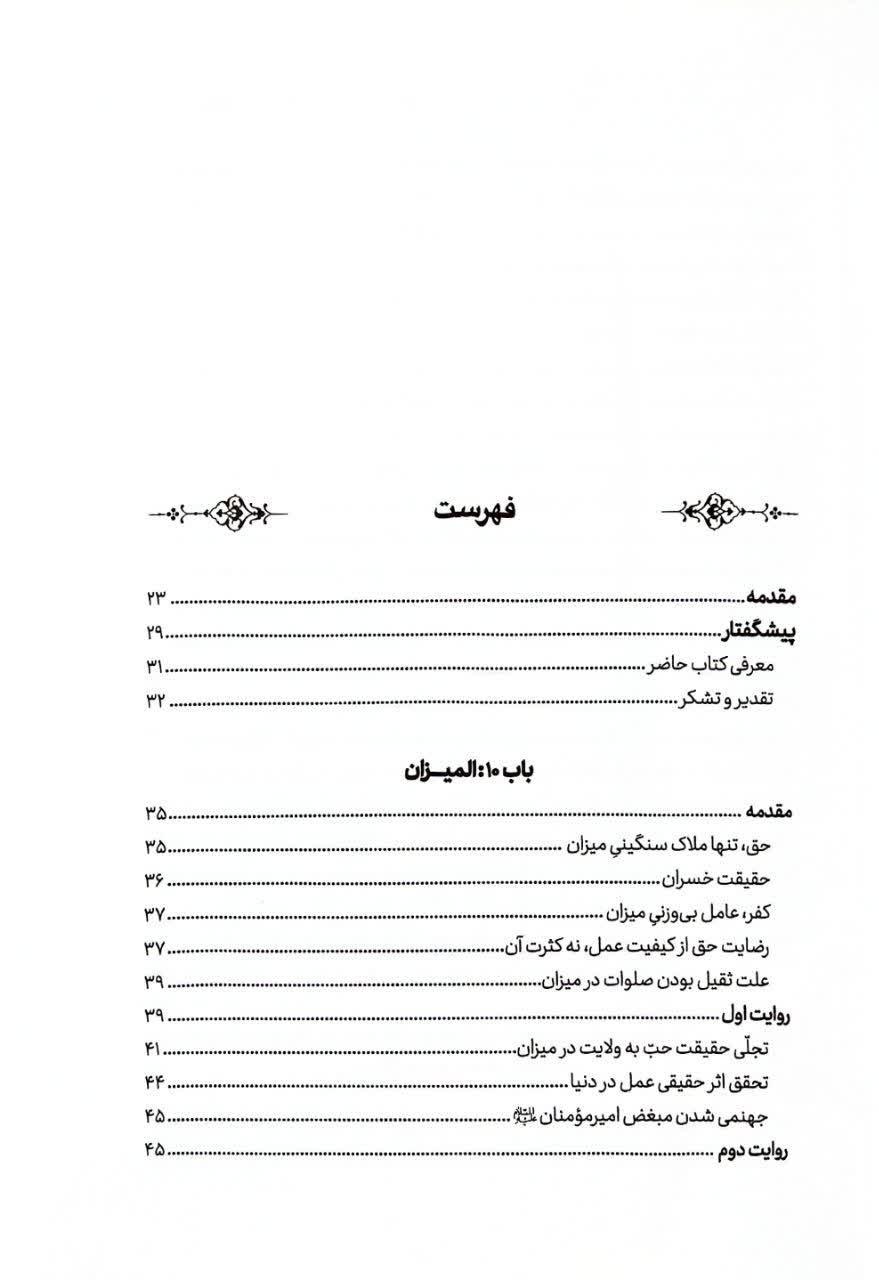 فهرست
مقدمه ........ ۲۳
پیشگفتار ........ ۲۹
معرفی کتاب حاضر ........ ۳۱
تقدیر و تشکر ........ ۳۲
باب ۱۰: المیـزان
مقدمه ........ ۳۵
حق، تنها ملاک سنگینیِ میزان ........ ۳۵
حقیقت خسران ........ ۳۶
کفر، عامل بی‌وزنیِ میزان ........ ۳۷
رضایت حق از کیفیت عمل، نه کثرت آن ........ ۳۷
علت ثقیل بودن صلوات در میزان ........ ۳۹
روایت اول ........ ۳۹
تجلّی حقیقت حبّ به ولایت در میزان ........ ۴۱
تحقق اثر حقیقی عمل در دنیا ........ ۴۴
جهنمی شدن مبغض امیرمؤمنان علیه‌السلام ........ ۴۵
روایت دوم ........ ۴۵